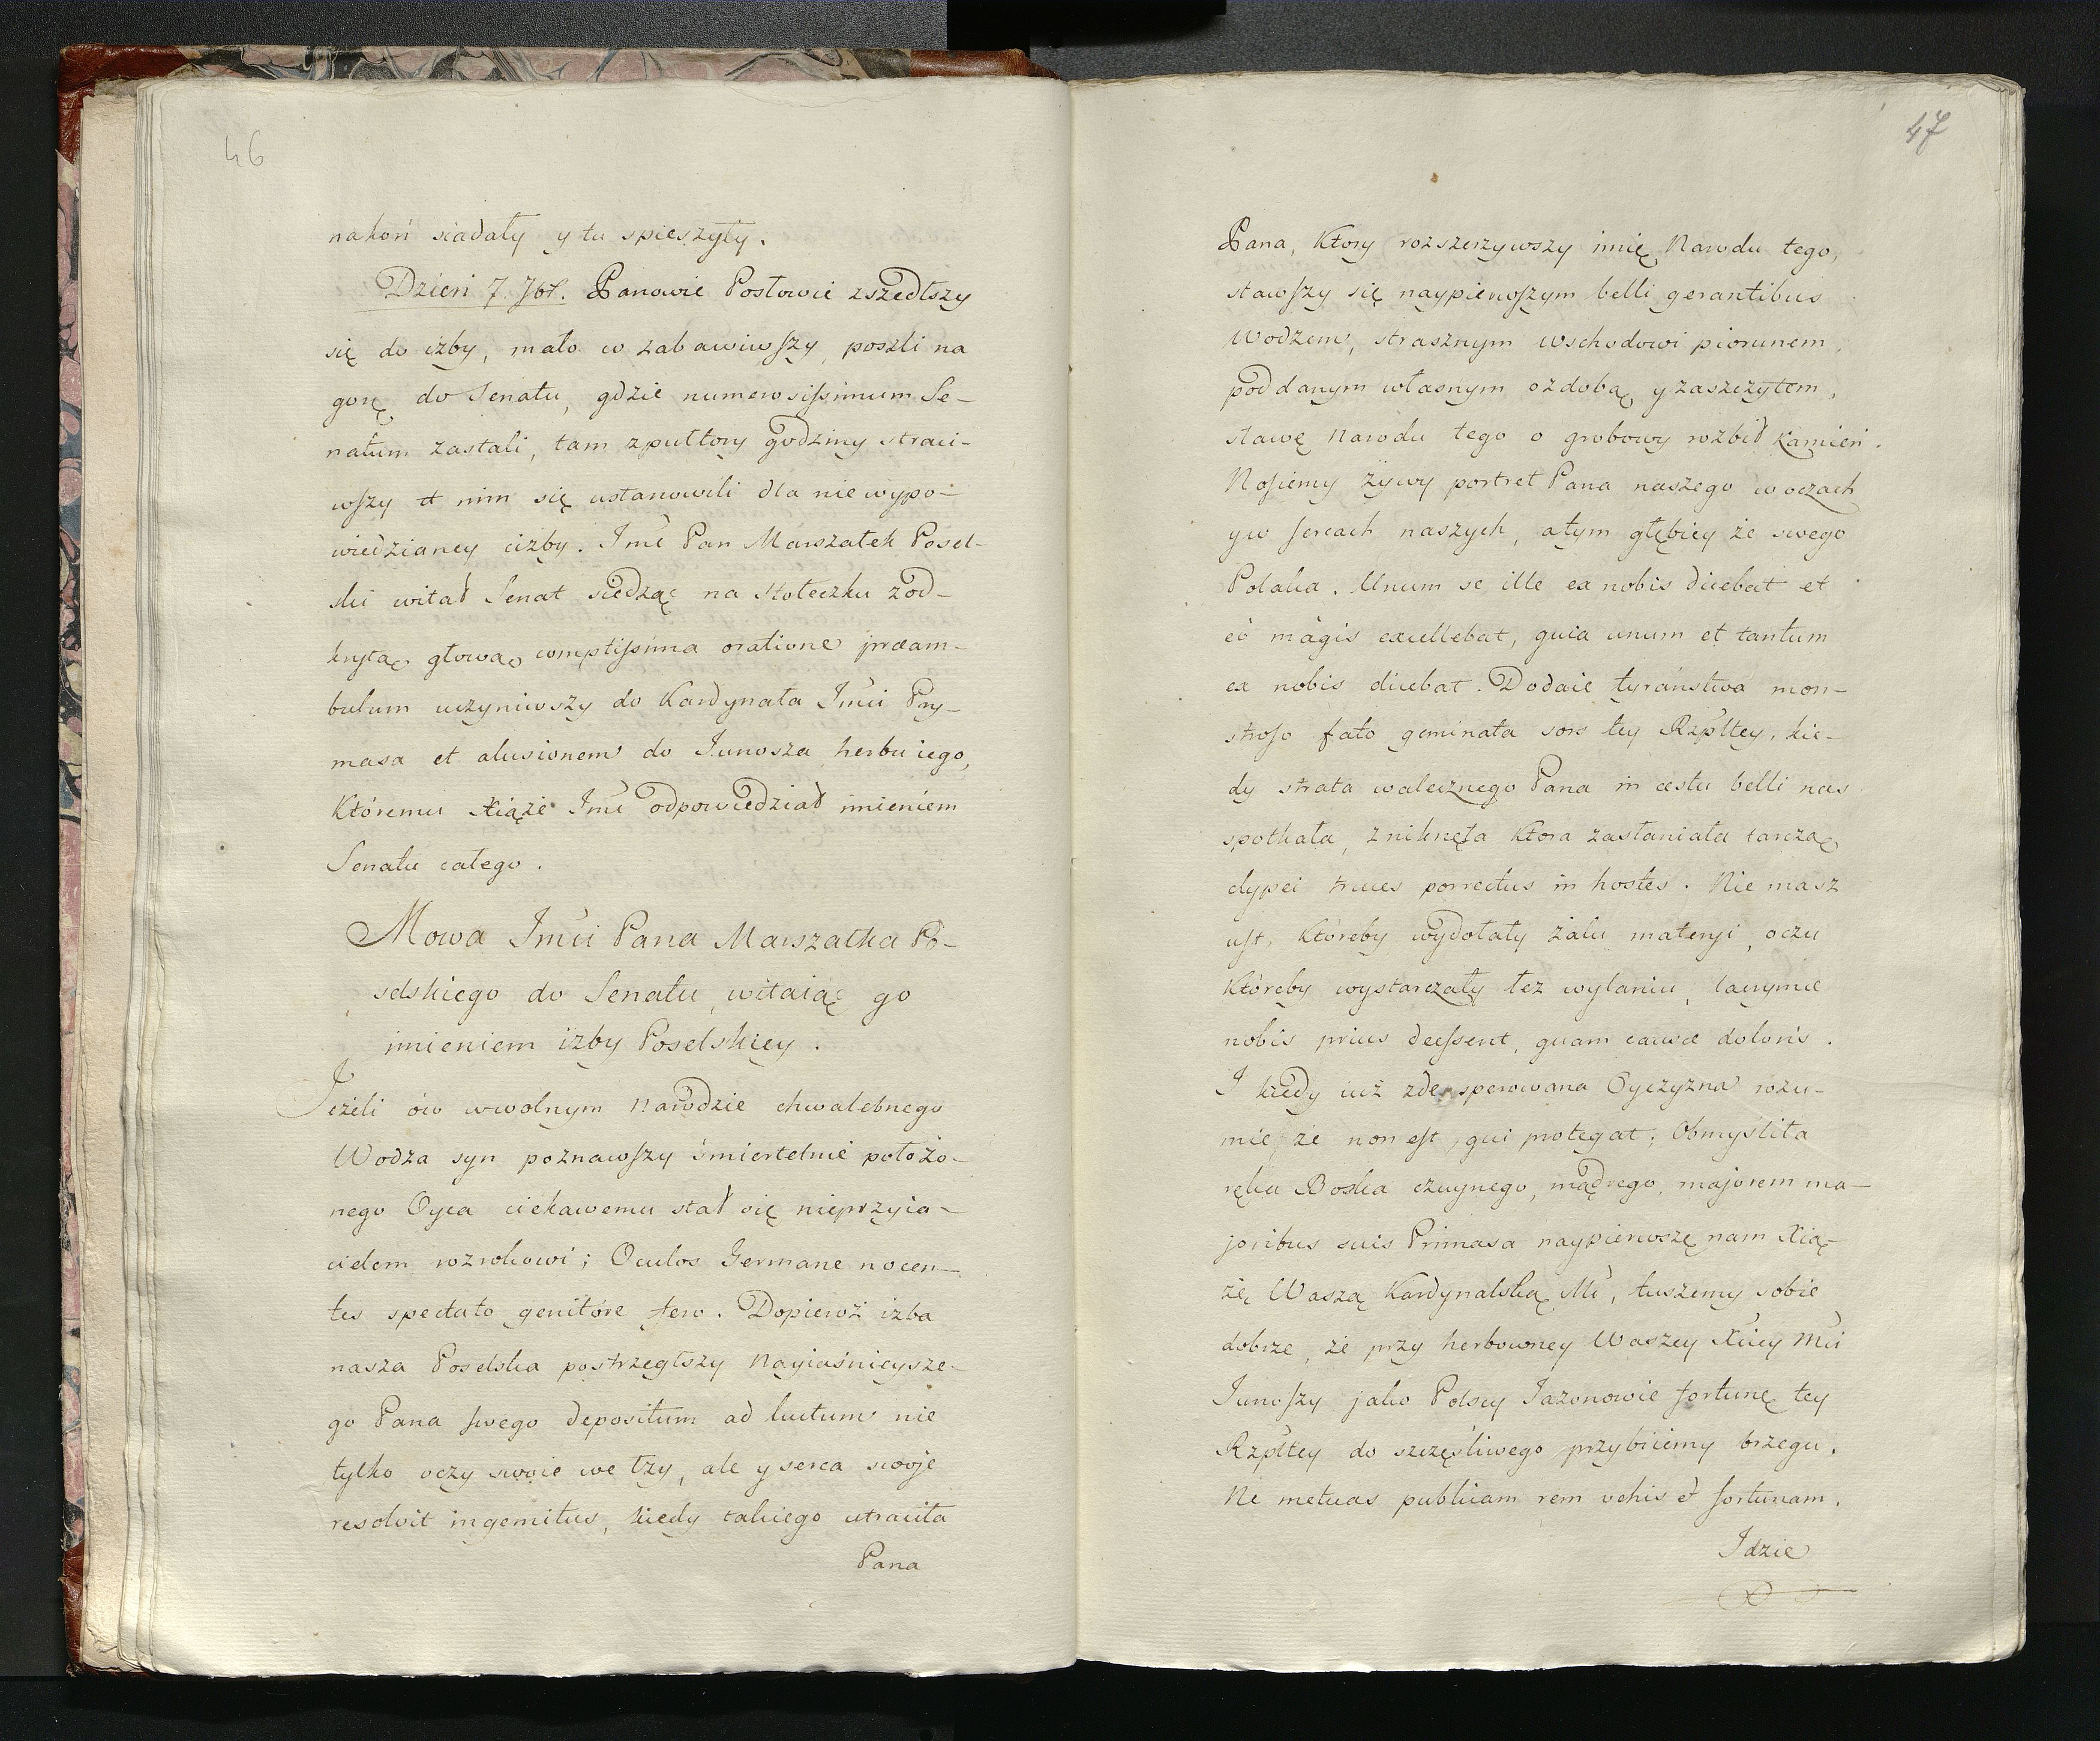 46
nakoń siadały y tu spieszyły.
Dzień 7. 7br. Panowie Posłowie zszedłszy
się do izby, mało w zabawiwszy, poszli na
gorę do Senatu, gdzie numerosissimum Se-
natum zastali, tam zpułtory godziny straci-
wszy nim się ustanowili dla niewypo-
wiedzianey ciżby. Jmć Pan Marszałek Posel-
ski witał Senat siedząc na stołeczku zod-
krytą głową comptissima oratione praeam-
bulum uczyniwszy do Kardynała Jmći Pry-
masa et alusionem do Junosza herbu iego,
Któremu Xiąże Jmć odpowiedział imieniem
Senatu całego.
Mowa Jmći Pana Marszałka Po-
selskiego do Senatu, witaiąc go
imieniem izby Poselskiey.
Jeżeli ów wwolnym narodzie chwalebnego
Wodza syn poznawszy śmiertelnie położo-
nego Oyca ciekawemu stał się nieprzyia-
cielem wzrokowi; Oculos Germane nocen-
tes spectato genitóre fero. Dopieroż izba
nasza Poselska postrzegłszy Nayiaśnieysze-
go Pana swego depositum ad luctum nie
tylko oczy swoie we łzy, ale y serca swoje
resolvit in gemitus, kiedy takiego utraciła
Pana
47
Pana, Ktory rozszerzywszy imię Narodu tego,
stawszy się naypierwszym belli gerantibus
Wodzem, strasznym wschodowi piorunem,
poddanym własnym ozdobą, y zaszczytem,
sławę Narodu tego o grobowy rozbił Kamień.
Nosiemy żywy portret Pana naszego w oczach
yw sercach naszych, atym głębiey że swego
Polaka. Unum se ille ex nobis dicebat et
eò màgis excellebat, quia unum et tantum
ex nobis dicebat. Dodaie tyraństwa mon-
stroso fato geminata sors tey Rzpltey, kie-
dy strata walecznego Pana in aestu belli nas
spotkała, zniknęła Ktora zasłaniała tarczą
clypei truces porrectus in hostes. Nie masz
ust, Któreby wydołały żalu materyi, oczu
Któreby wystarczały łez wylaniu, lacrymae
nobis prius deessent, quam causae doloris.
I kiedy iuż zdesperowana Oyczyzna rozu-
mie, że non est, qui protegat; Obmyśliła
ręka Boska czuynego, mądrego, majorem ma-
joribus suis Primasa naypierwszę nam Xią-
żę Waszą Kardynalską Mć, tuszemy sobie
dobrze, że przy herbowney Waszey Xćiey Mći
Junoszy jako Polscy Jazonowie fortunę tey
Rzpltey do szczęśliwego przybiiemy brzegu.
Ne metuas publicam rem vehis et fortunam.
Jdzie